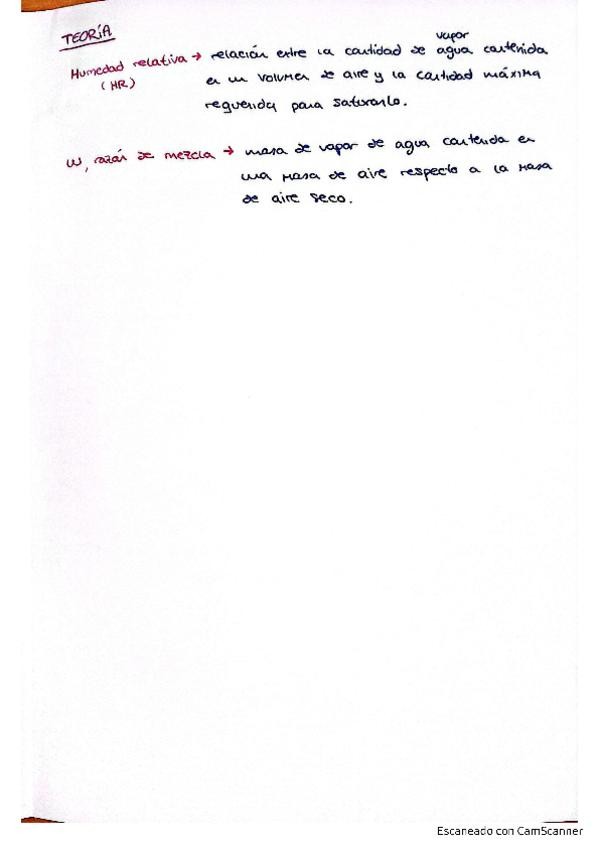 TEORÍA
vapor
Humedad relativa → relación entre la cantidad de agua contenida
(HR) en un volumen de aire y la cantidad máxima
requerida para saturarlo.
W, razón de mezcla → masa de vapor de agua contenida en
una masa de aire respecto a la masa
de aire seco.
Escaneado con CamScanner